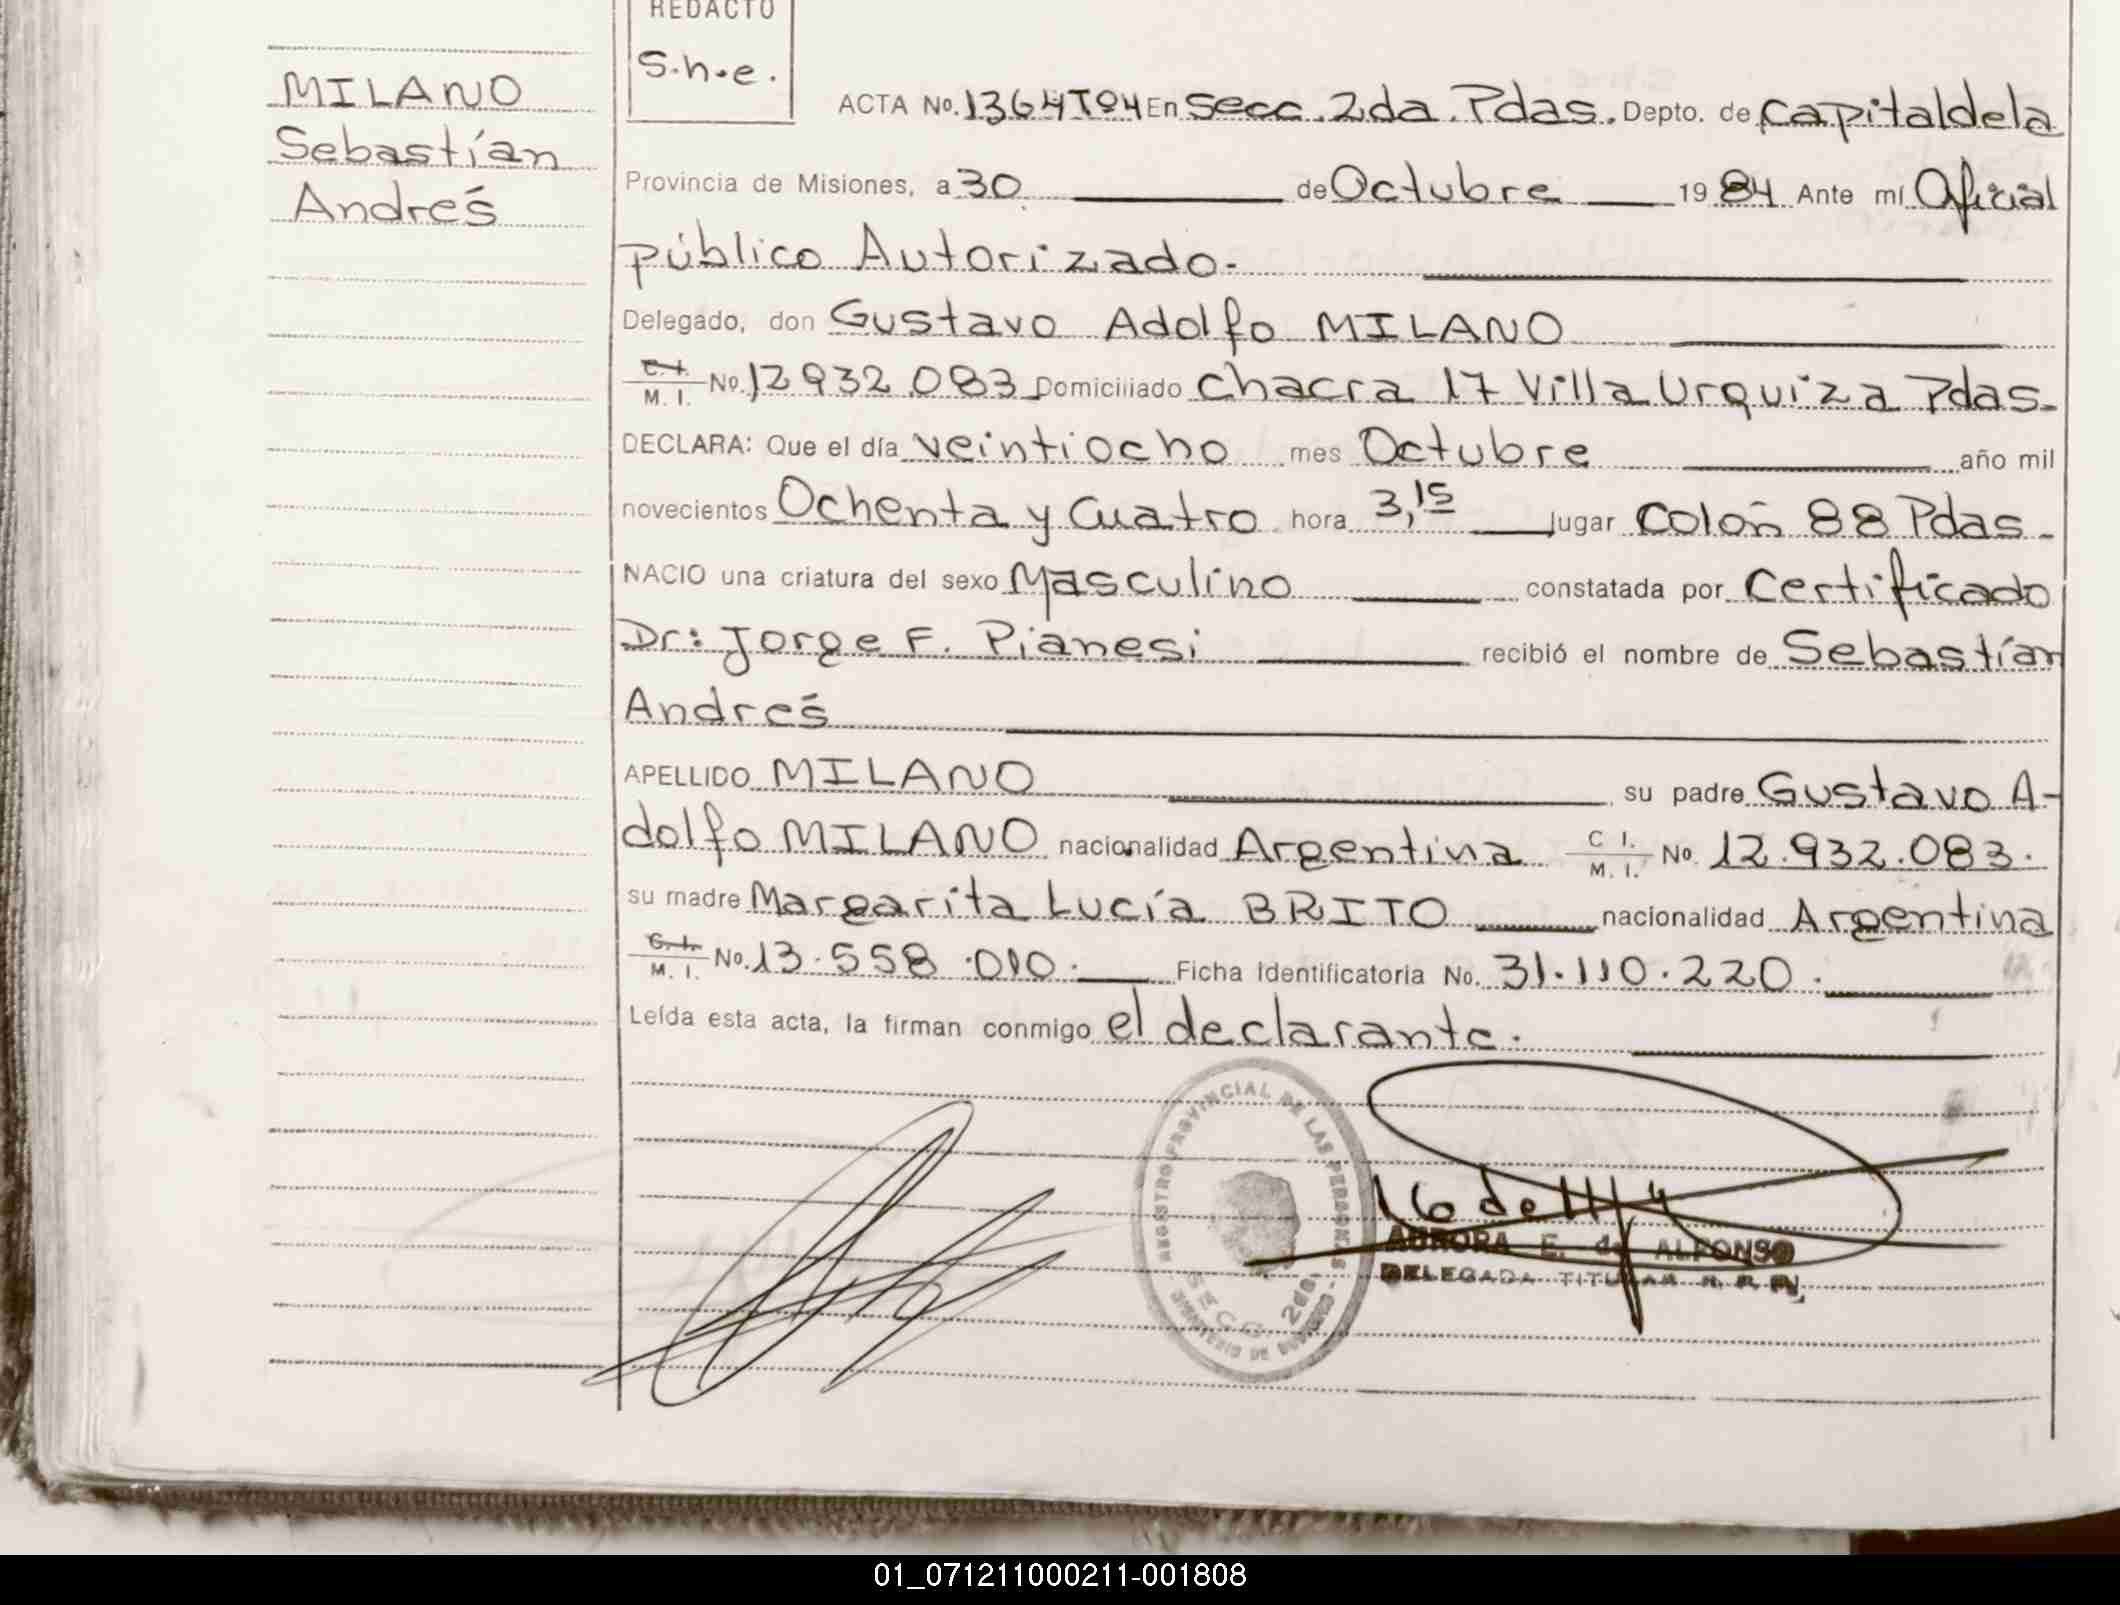 REDACTO
S.h.e.
MILANO
Sebastían
Andrés
ACTA No. 1364 T04 En Secc. 2da. Pdas. Depto. de Capital de la
Provincia de Misiones, a 30 de Octubre 1984 Ante mí Oficial
público Autorizado.
Delegado, don Gustavo Adolfo MILANO
C.I. M.I. No. 12.932.083 Domiciliado Chacra 17 Villa Urquiza Pdas.
DECLARA: Que el día veintiocho mes Octubre año mil
novecientos Ochenta y Cuatro hora 3,15 lugar Colón 88 Pdas.
NACIO una criatura del sexo Masculino constatada por Certificado
Dr: Jorge F. Pianesi recibió el nombre de Sebastían
Andrés
APELLIDO MILANO su padre Gustavo A-
dolfo MILANO nacionalidad Argentina C I. M. I. No. 12.932.083.
su madre Margarita Lucía BRITO nacionalidad Argentina
C.I. M.I. No. 13.558.010. Ficha Identificatoria No. 31.110.220.
Leída esta acta, la firman conmigo el declarante.
REGISTRO PROVINCIAL DE LAS PERSONAS
SECC. 2da.
AURORA E. de ALFONSO
DELEGADA TITULAR R. P. P.
01_071211000211-001808